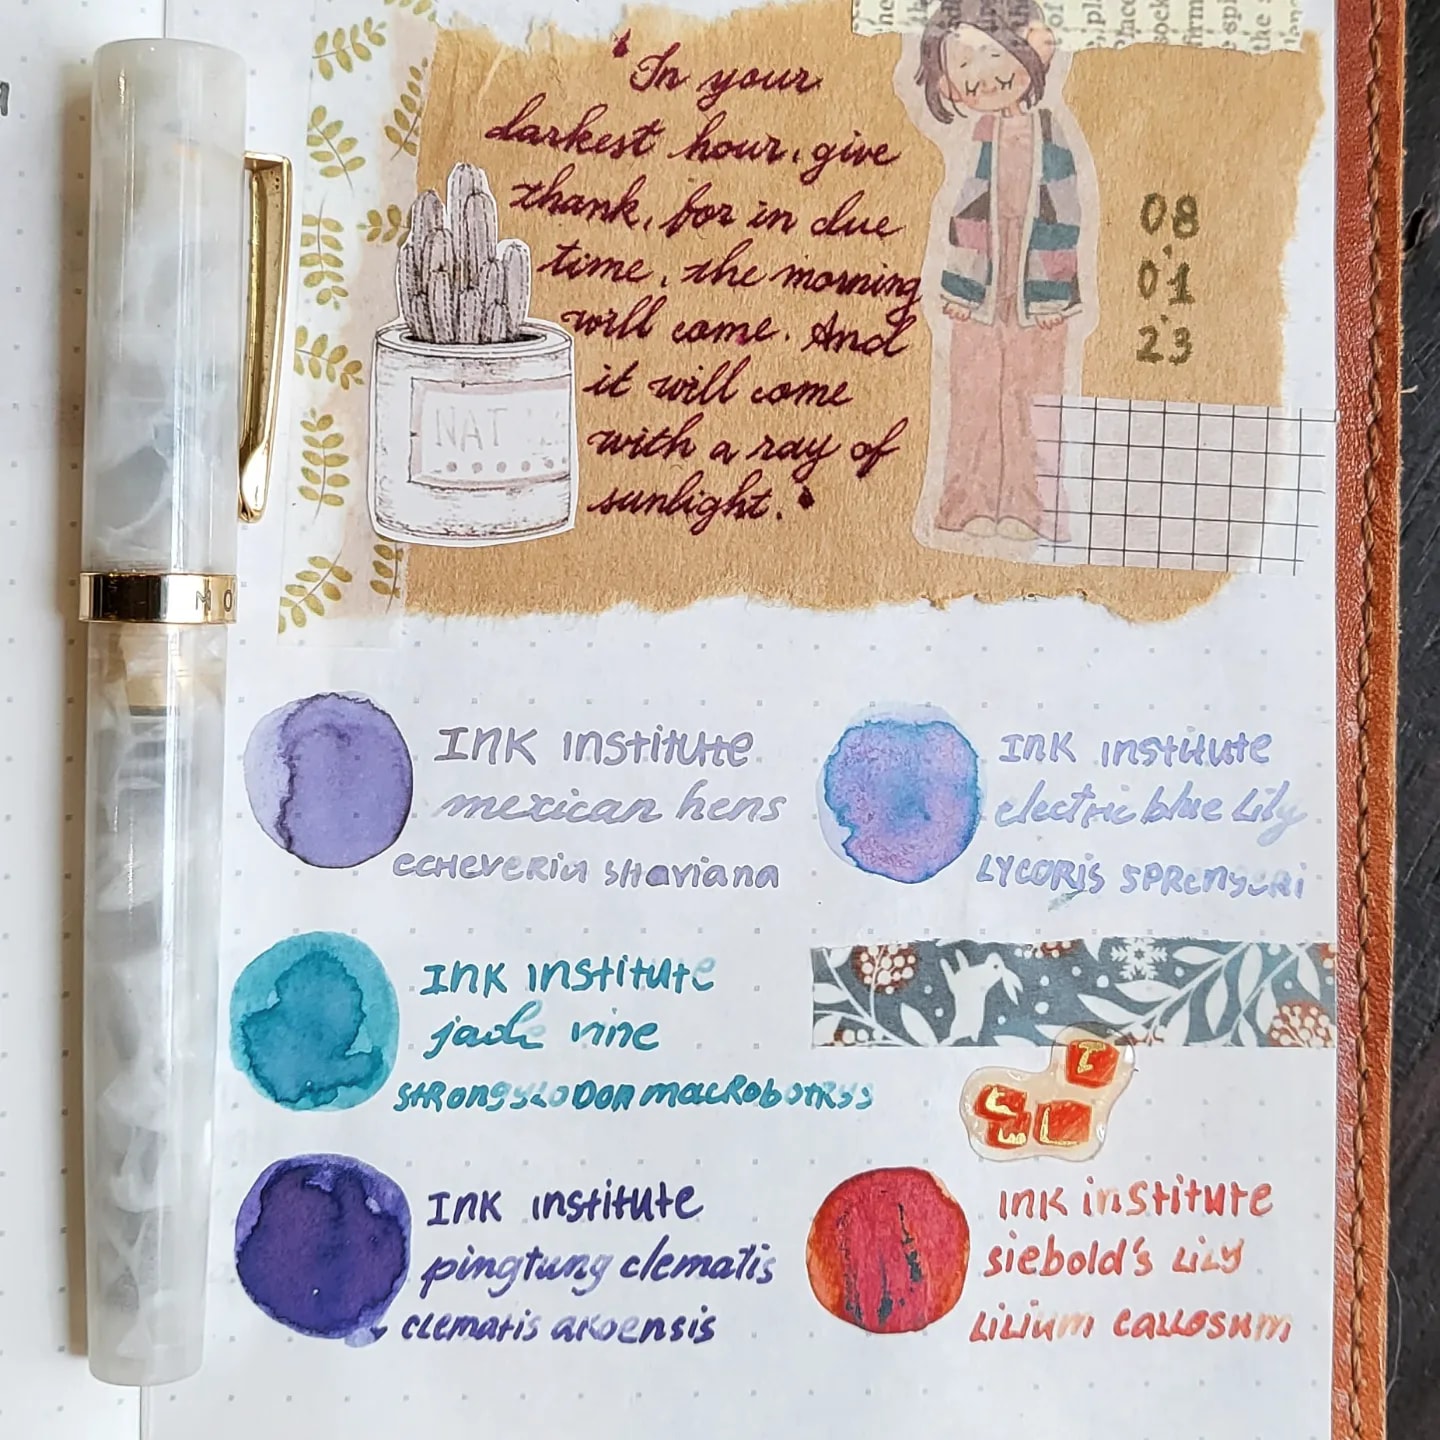 "In your
darkest hour, give
thank, for in due
time, the morning
will come. And
it will come
with a ray of
sunlight."
08
01
23
NAT
INK institute
mexican hens
echeveria shaviana
INK institute
electric blue lily
LYCORIS SPRENGERI
INK institute
jade vine
strongylodon macrobotrys
INK institute
pingtung clematis
clematis akoensis
INK institute
siebold's lily
Lilium callosum